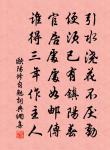 引水浇花不厌勤
便须已有镇阳春
官居处处如邮传
谁得三年作主人
欧阳修自勉词典网集